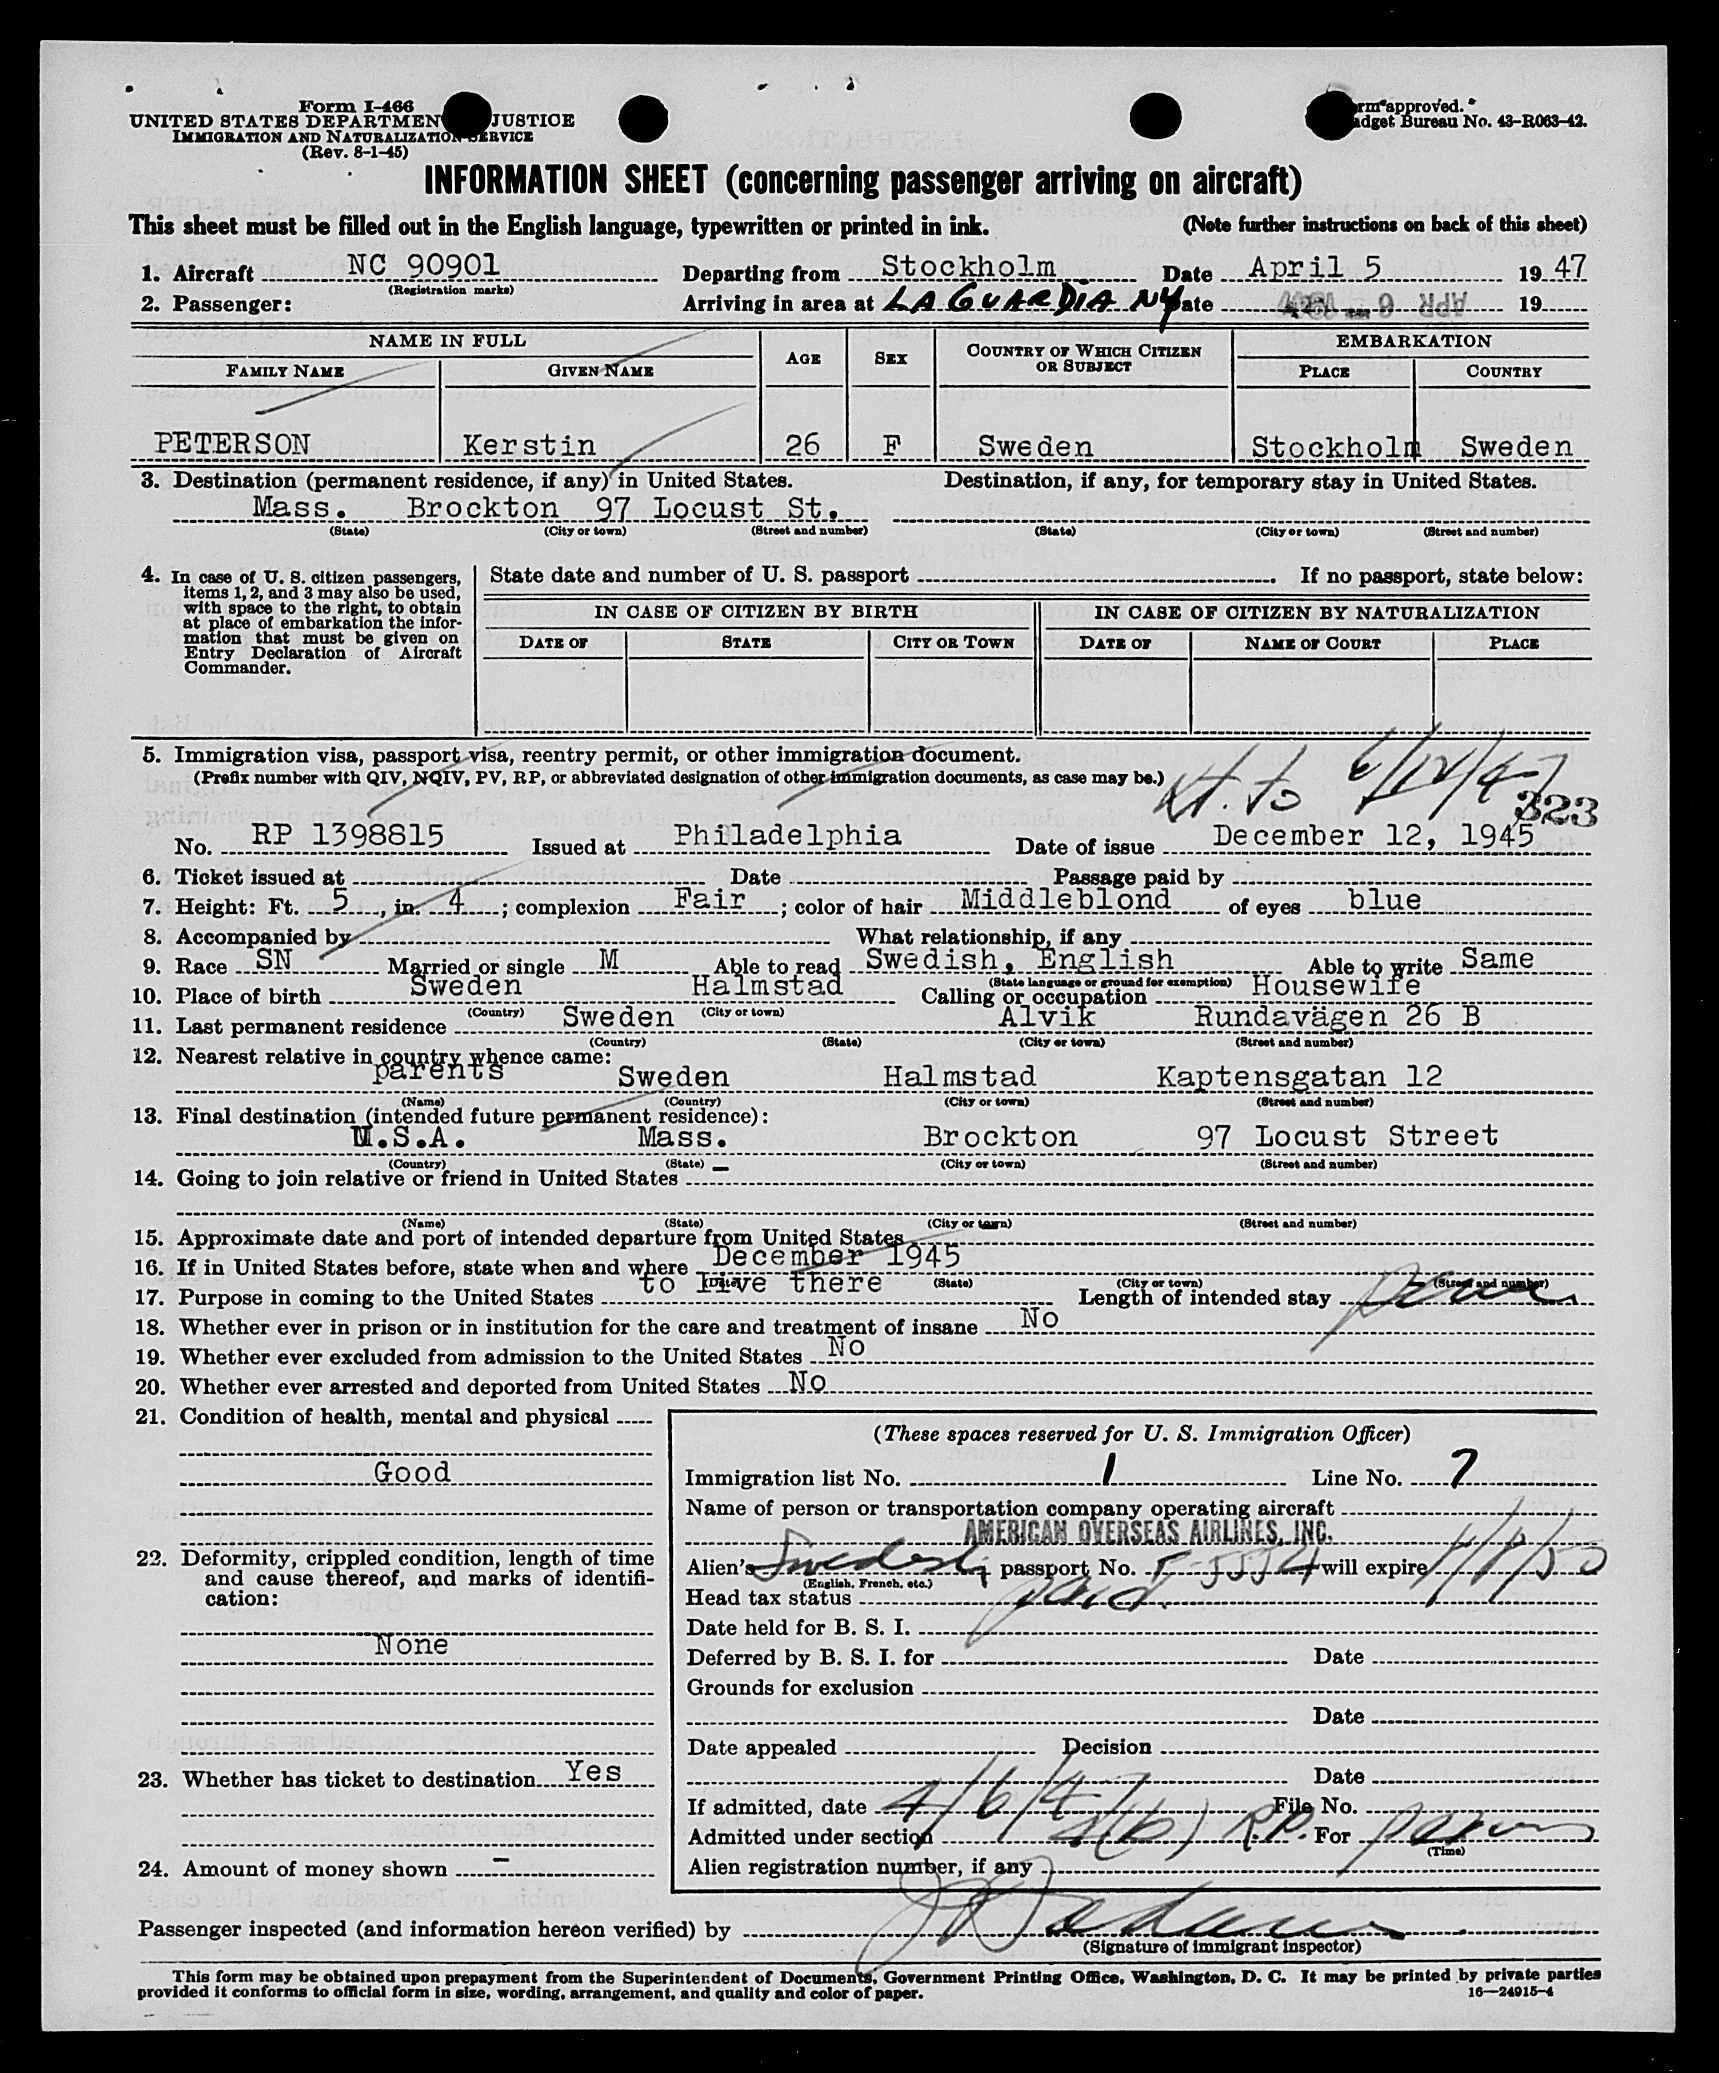 Form I-466
UNITED STATES DEPARTMENT JUSTICE
IMMIGRATION AND NATURALIZATION SERVICE
(Rev. 8-1-45)
approved.
Budget Bureau No. 43-R063-42.
INFORMATION SHEET (concerning passenger arriving on aircraft)
This sheet must be filled out in the English language, typewritten or printed in ink. (Note further instructions on back of this sheet)
1. Aircraft NC 90901 Departing from Stockholm Date April 5 19 47
(Registration marks)
2. Passenger: Arriving in area at LAGUARDIA NY Date APR 6 1947 19
NAME IN FULL AGE SEX COUNTRY OF WHICH CITIZEN OR SUBJECT EMBARKATION
FAMILY NAME GIVEN NAME PLACE COUNTRY
PETERSON Kerstin 26 F Sweden Stockholm Sweden
3. Destination (permanent residence, if any) in United States. Destination, if any, for temporary stay in United States.
Mass. Brockton 97 Locust St.
(State) (City or town) (Street and number) (State) (City or town) (Street and number)
4. In case of U. S. citizen passengers, items 1, 2, and 3 may also be used, with space to the right, to obtain at place of embarkation the information that must be given on Entry Declaration of Aircraft Commander.
State date and number of U. S. passport . If no passport, state below:
IN CASE OF CITIZEN BY BIRTH IN CASE OF CITIZEN BY NATURALIZATION
DATE OF STATE CITY OR TOWN DATE OF NAME OF COURT PLACE
5. Immigration visa, passport visa, reentry permit, or other immigration document.
(Prefix number with QIV, NQIV, PV, RP, or abbreviated designation of other immigration documents, as case may be.)
to 6/12/47
323
No. RP 1398815 Issued at Philadelphia Date of issue December 12, 1945
6. Ticket issued at Date Passage paid by
7. Height: Ft. 5, in. 4; complexion Fair; color of hair Middleblond of eyes blue
8. Accompanied by What relationship, if any
9. Race SN Married or single M Able to read Swedish, English Able to write Same
(State language or ground for exemption)
10. Place of birth Sweden Halmstad Calling or occupation Housewife
(Country) (City or town)
11. Last permanent residence Sweden Alvik Rundavägen 26 B
(Country) (State) (City or town) (Street and number)
12. Nearest relative in country whence came:
parents Sweden Halmstad Kaptensgatan 12
(Name) (Country) (City or town) (Street and number)
13. Final destination (intended future permanent residence):
U.S.A. Mass. Brockton 97 Locust Street
(Country) (State) (City or town) (Street and number)
14. Going to join relative or friend in United States –
(Name) (State) (City or town) (Street and number)
15. Approximate date and port of intended departure from United States
16. If in United States before, state when and where December 1945
(Date) (State) (City or town) (Street and number)
17. Purpose in coming to the United States to live there Length of intended stay perm
18. Whether ever in prison or in institution for the care and treatment of insane No
19. Whether ever excluded from admission to the United States No
20. Whether ever arrested and deported from United States No
21. Condition of health, mental and physical
Good
22. Deformity, crippled condition, length of time and cause thereof, and marks of identification:
None
23. Whether has ticket to destination Yes
24. Amount of money shown –
(These spaces reserved for U. S. Immigration Officer)
Immigration list No. 1 Line No. 7
Name of person or transportation company operating aircraft
AMERICAN OVERSEAS AIRLINES, INC.
Alien's Swedish passport No. will expire
(English, French, etc.)
Head tax status paid.
Date held for B. S. I.
Deferred by B. S. I. for Date
Grounds for exclusion
Date
Date appealed Decision
Date
If admitted, date 4/6/47 File No.
Admitted under section 4(b) R.P. For perm
(Time)
Alien registration number, if any
Passenger inspected (and information hereon verified) by
(Signature of immigrant inspector)
This form may be obtained upon prepayment from the Superintendent of Documents, Government Printing Office, Washington, D. C. It may be printed by private parties
provided it conforms to official form in size, wording, arrangement, and quality and color of paper.
16—24915-4